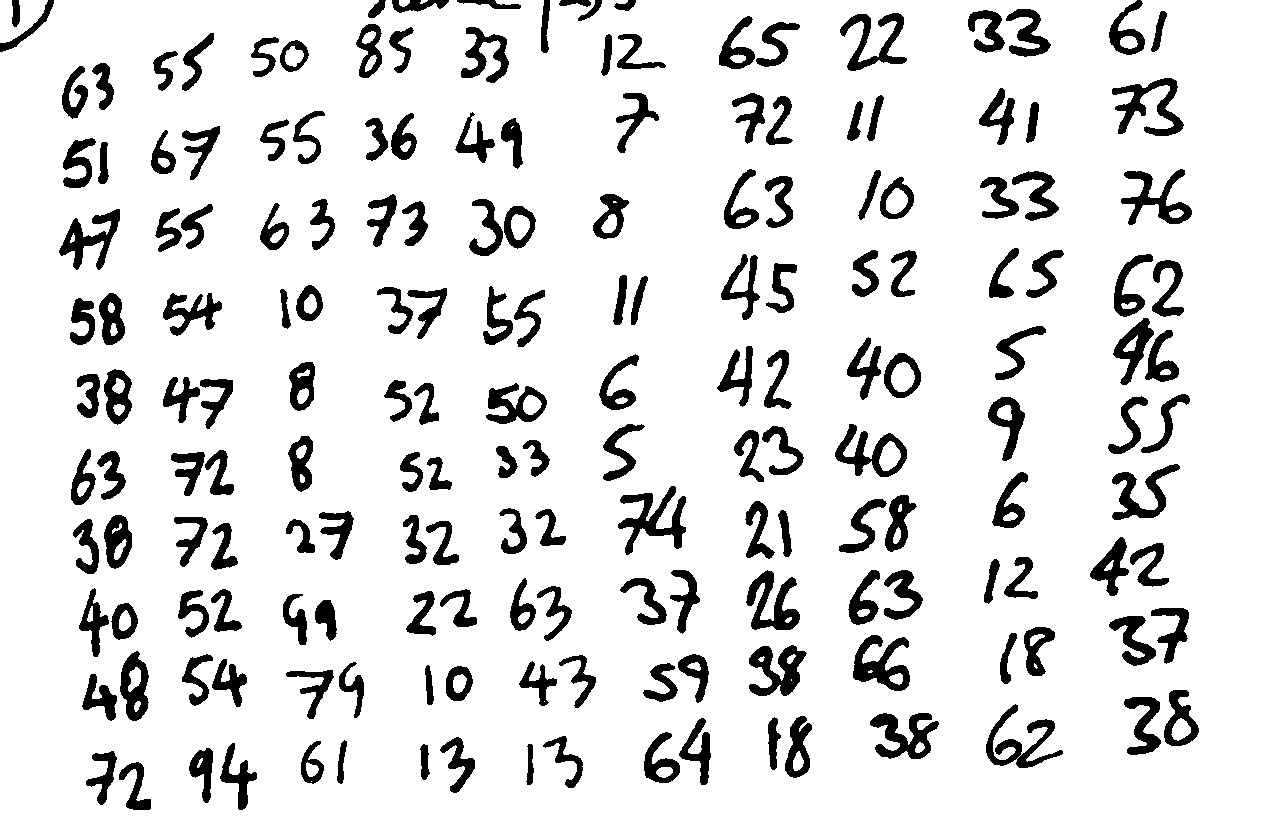 63 55 50 85 33 12 65 22 33 61
51 67 55 36 49 7 72 11 41 73
47 55 63 73 30 8 63 10 33 76
58 54 10 37 55 11 45 52 65 62
38 47 8 52 50 6 42 40 5 96
63 72 8 52 33 5 23 40 9 55
38 72 27 32 32 74 21 58 6 35
40 52 99 22 63 37 26 63 12 42
48 54 79 10 43 59 38 66 18 37
72 94 61 13 13 64 18 38 62 38